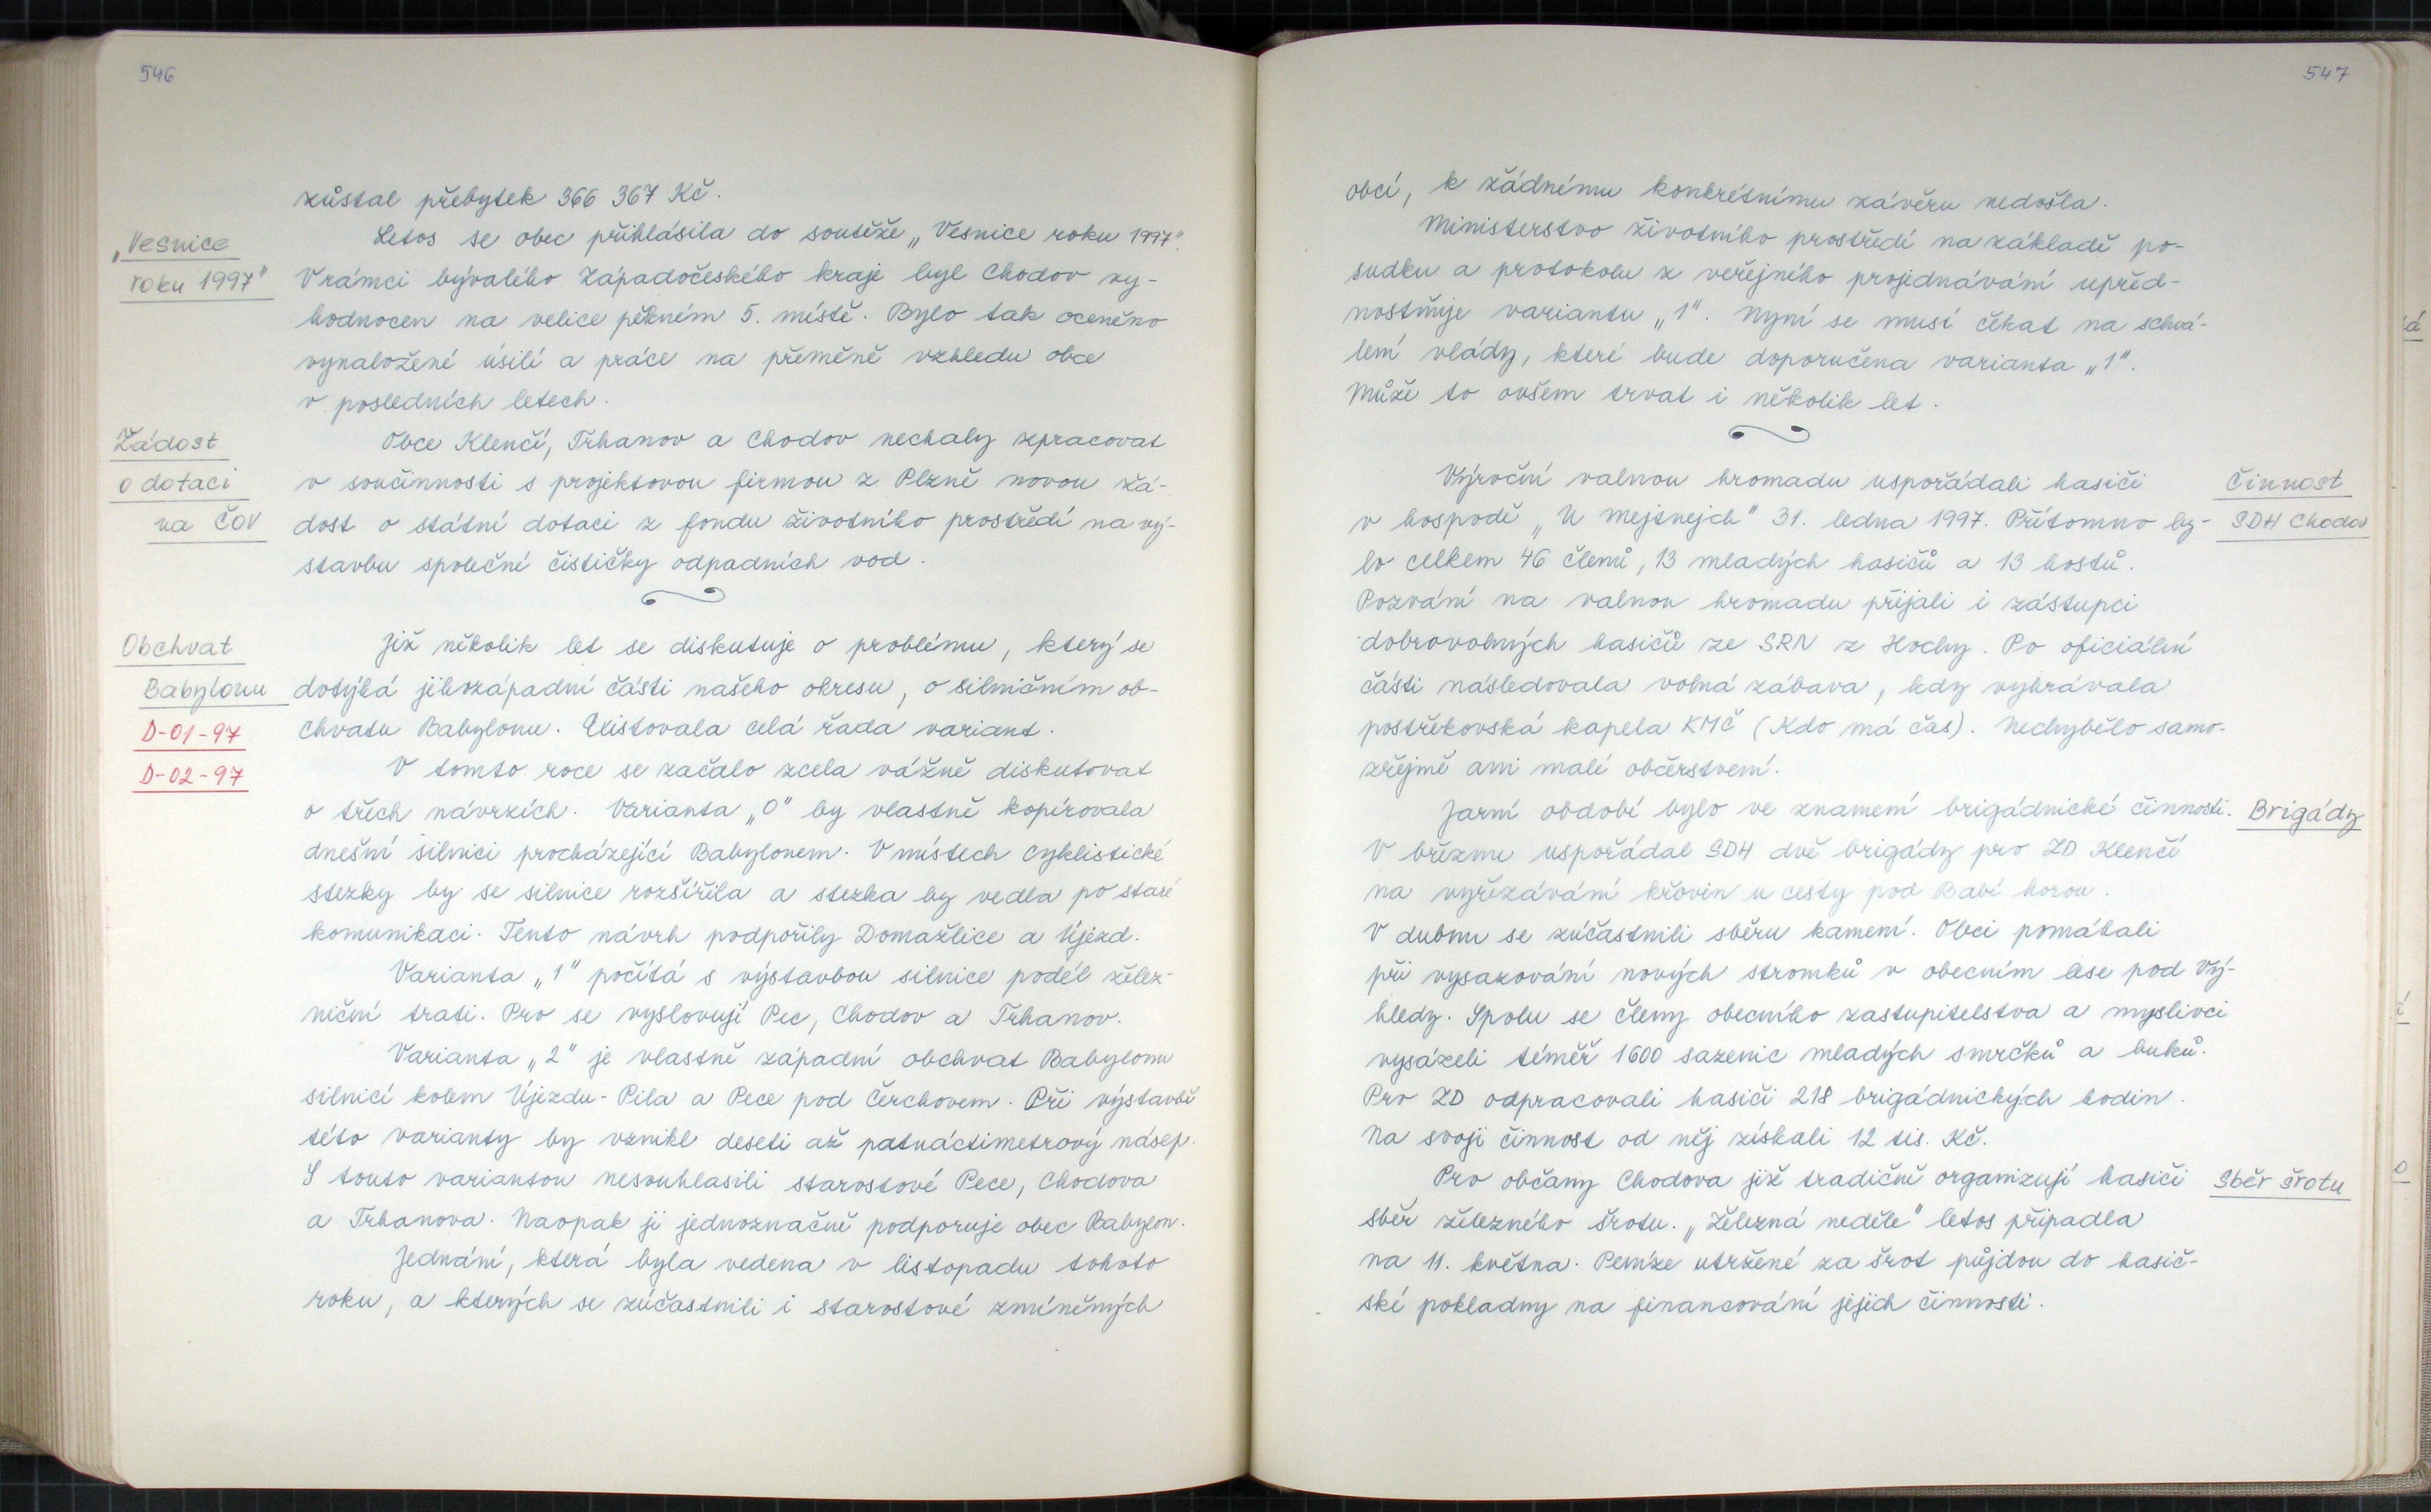 546
zůstal přebytek 366 367 Kč.
„Vesnice
roku 1997"
Letos se obec přihlásila do soutěže „Vesnice roku 1997".
V rámci bývalého Západočeského kraje byl Chodov vy-
hodnocen na velice pěkném 5. místě. Bylo tak oceněno
vynaložené úsilí a práce na přeměně vzhledu obce
v posledních letech.
Žádost
o dotaci
na ČOV
Obce Klenčí, Trhanov a Chodov nechaly zpracovat
v součinnosti s projektovou firmou z Plzně novou žá-
dost o státní dotaci z fondu životního prostředí na vý-
stavbu společné čističky odpadních vod.
Obchvat
Babylonu
D-01-97
D-02-97
Již několik let se diskutuje o problému, který se
dotýká jihozápadní části našeho okresu, o silničním ob-
chvatu Babylonu. Existovala celá řada variant.
V tomto roce se začalo zcela vážně diskutovat
o třech návrzích. Varianta „0" by vlastně kopírovala
dnešní silnici procházející Babylonem. V místech cyklistické
stezky by se silnice rozšířila a stezka by vedla po staré
komunikaci. Tento návrh podpořily Domažlice a Újezd.
Varianta „1" počítá s výstavbou silnice podél želez-
niční trati. Pro se vyslovují Pec, Chodov a Trhanov.
Varianta „2" je vlastně západní obchvat Babylonu
silnicí kolem Újezdu - Pila a Pece pod Čerchovem. Při výstavbě
této varianty by vznikl deseti až patnáctimetrový násep.
S touto variantou nesouhlasili starostové Pece, Chodova
a Trhanova. Naopak ji jednoznačně podporuje obec Babylon.
Jednání, která byla vedena v listopadu tohoto
roku, a kterých se zúčastnili i starostové zmíněných
547
obcí, k žádnému konkrétnímu závěru nedošla.
Ministerstvo životního prostředí na základě po-
sudku a protokolu z veřejného projednávání upřed-
nostňuje variantu „1". Nyní se musí čekat na schvá-
lení vlády, které bude doporučena varianta „1".
Může to ovšem trvat i několik let.
Činnost
SDH Chodov
Výroční valnou hromadu uspořádali hasiči
v hospodě „U Mejtnejch" 31. ledna 1997. Přítomno by-
lo celkem 46 členů, 13 mladých hasičů a 13 hostů.
Pozvání na valnou hromadu přijali i zástupci
dobrovolných hasičů ze SRN z Hochy. Po oficiální
části následovala volná zábava, kdy vyhrávala
postřekovská kapela KMČ (Kdo má čas). Nechybělo samo-
zřejmě ani malé občerstvení.
Jarní období bylo ve znamení brigádnické činnosti.
Brigády
V březnu uspořádal SDH dvě brigády pro ZD Klenčí
na vyřezávání křovin u cesty pod Babí horou.
V dubnu se zúčastnili sběru kamení. Obci pomáhali
při vysazování nových stromků v obecním lese pod Vý-
hledy. Spolu se členy obecního zastupitelstva a myslivci
vysázeli téměř 1600 sazenic mladých smrčků a buků.
Pro ZD odpracovali hasiči 218 brigádnických hodin.
Na svoji činnost od něj získali 12 tis. Kč.
Pro občany Chodova již tradičně organizují hasiči
Sběr šrotu
sběr železného šrotu. „Železná neděle" letos připadla
na 11. května. Peníze utržené za šrot půjdou do hasič-
ské pokladny na financování jejich činnosti.